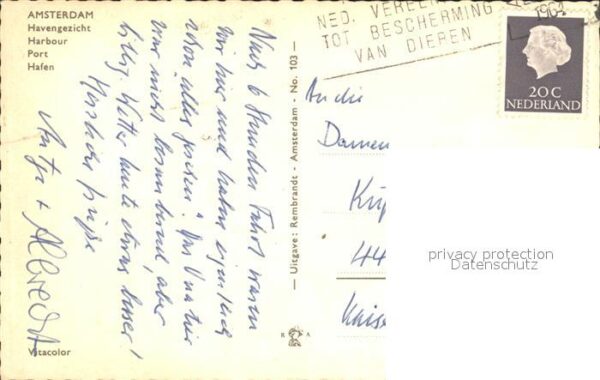 AMSTERDAM
Havengezicht
Harbour
Port
Hafen
Nach 6 Stunden Fahrt waren
wir hier und haben eigentlich
schon alles gesehen. Das
war nicht aber
Wetter heute etwas besser!
Herzliche Grüße
Antje + Albrecht
Vitacolor
— Uitgave: Rembrandt - Amsterdam - No. 103 —
R A
NED. VEREEN
TOT BESCHERMING
VAN DIEREN
20 C
NEDERLAND
An die
Damen
44
Kaise
privacy protection
Datenschutz